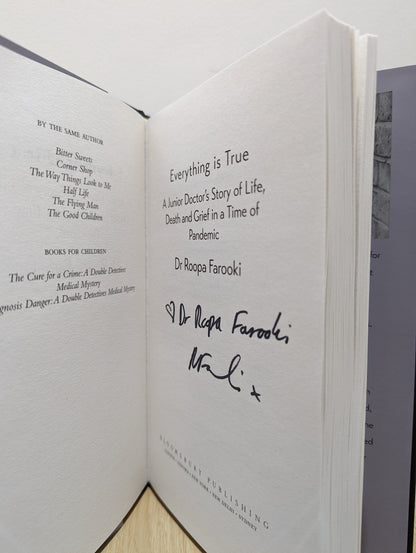 BY THE SAME AUTHOR
Bitter Sweets
Corner Shop
The Way Things Look to Me
Half Life
The Flying Man
The Good Children
BOOKS FOR CHILDREN
The Cure for a Crime: A Double Detectives
Medical Mystery
gnosis Danger: A Double Detectives Medical Mystery
Everything is True
A Junior Doctor's Story of Life,
Death and Grief in a Time of
Pandemic
Dr Roopa Farooki
♡ Dr Roopa Farooki
BLOOMSBURY PUBLISHING
LONDON • OXFORD • NEW YORK • NEW DELHI • SYDNEY